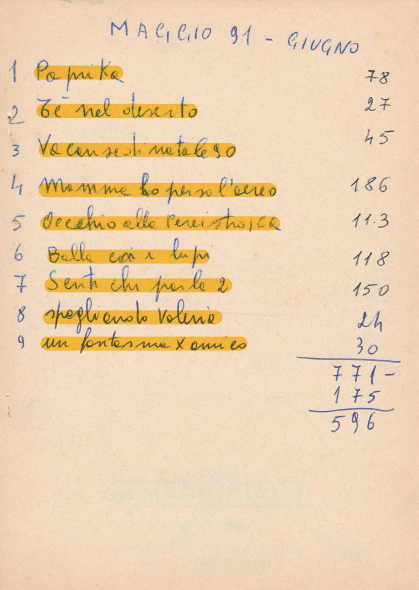 MAGGIO 91 - GIUGNO
1 Paprika 78
2 Tè nel deserto 27
3 Vacanze di natale 90 45
4 Mamma ho perso l'aereo 186
5 Occhio alla Pereistroica 113
6 Balla coi lupi 118
7 Senti chi parla 2 150
8 spogliando Valeria 24
9 un fantasma x amico 30
771-
175
596